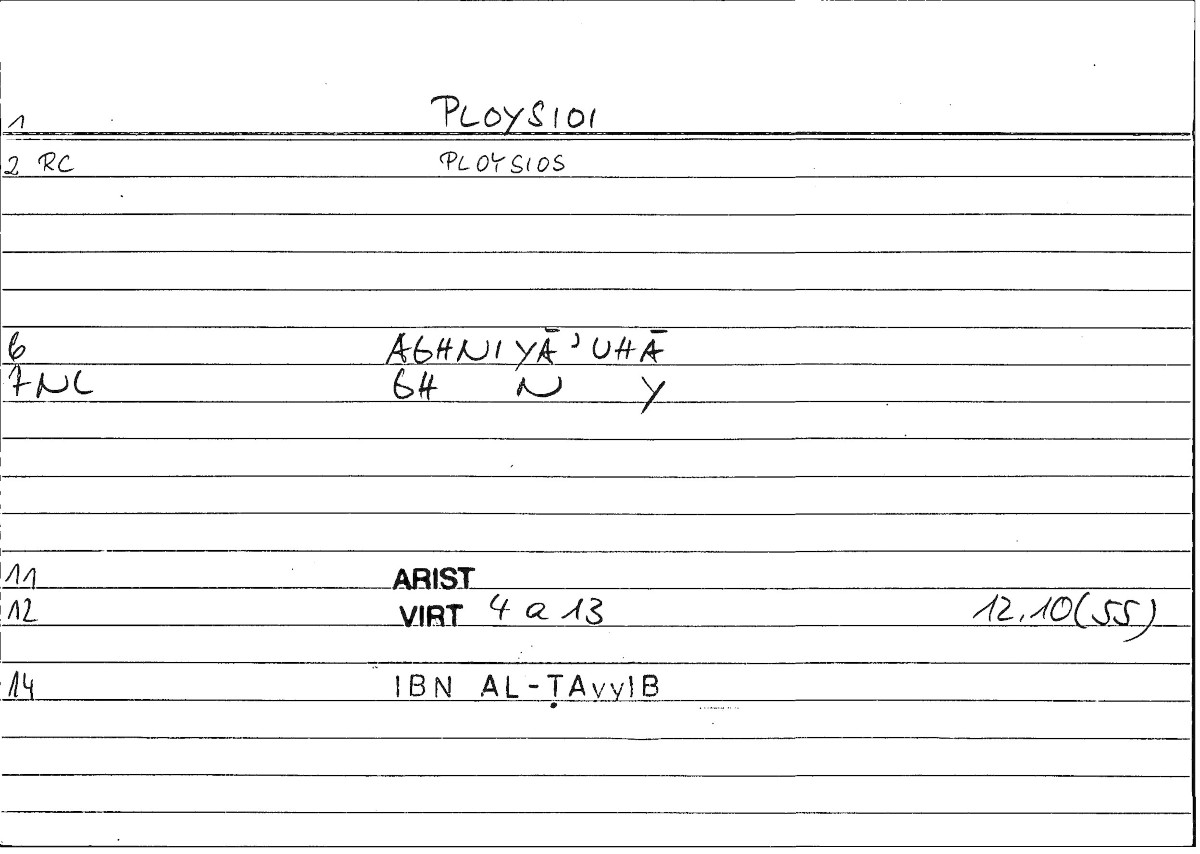 1 PLOYSIOI
2 RC PLOYSIOS
6 AGHNIYĀ'UHĀ
7NC GH N Y
11 ARIST
12 VIRT 4 a 13 12.10(55)
14 IBN AL-ṬAvyIB